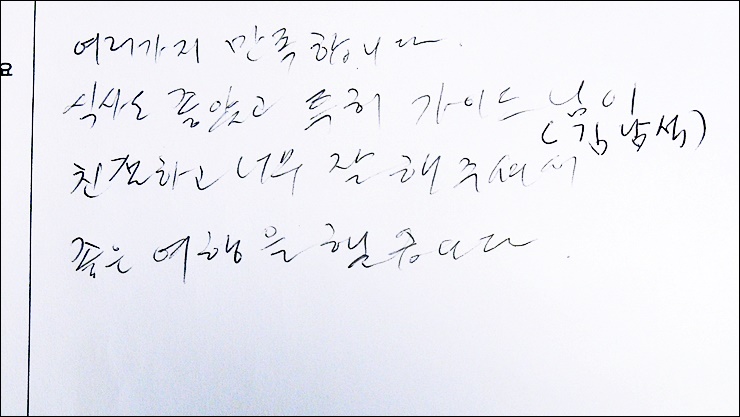 요
여러가지 만족합니다.
식사도 좋았고 특히 가이드님이
(김남석)
친절하고 너무 잘 해주셔서
좋은 여행을 했습니다.